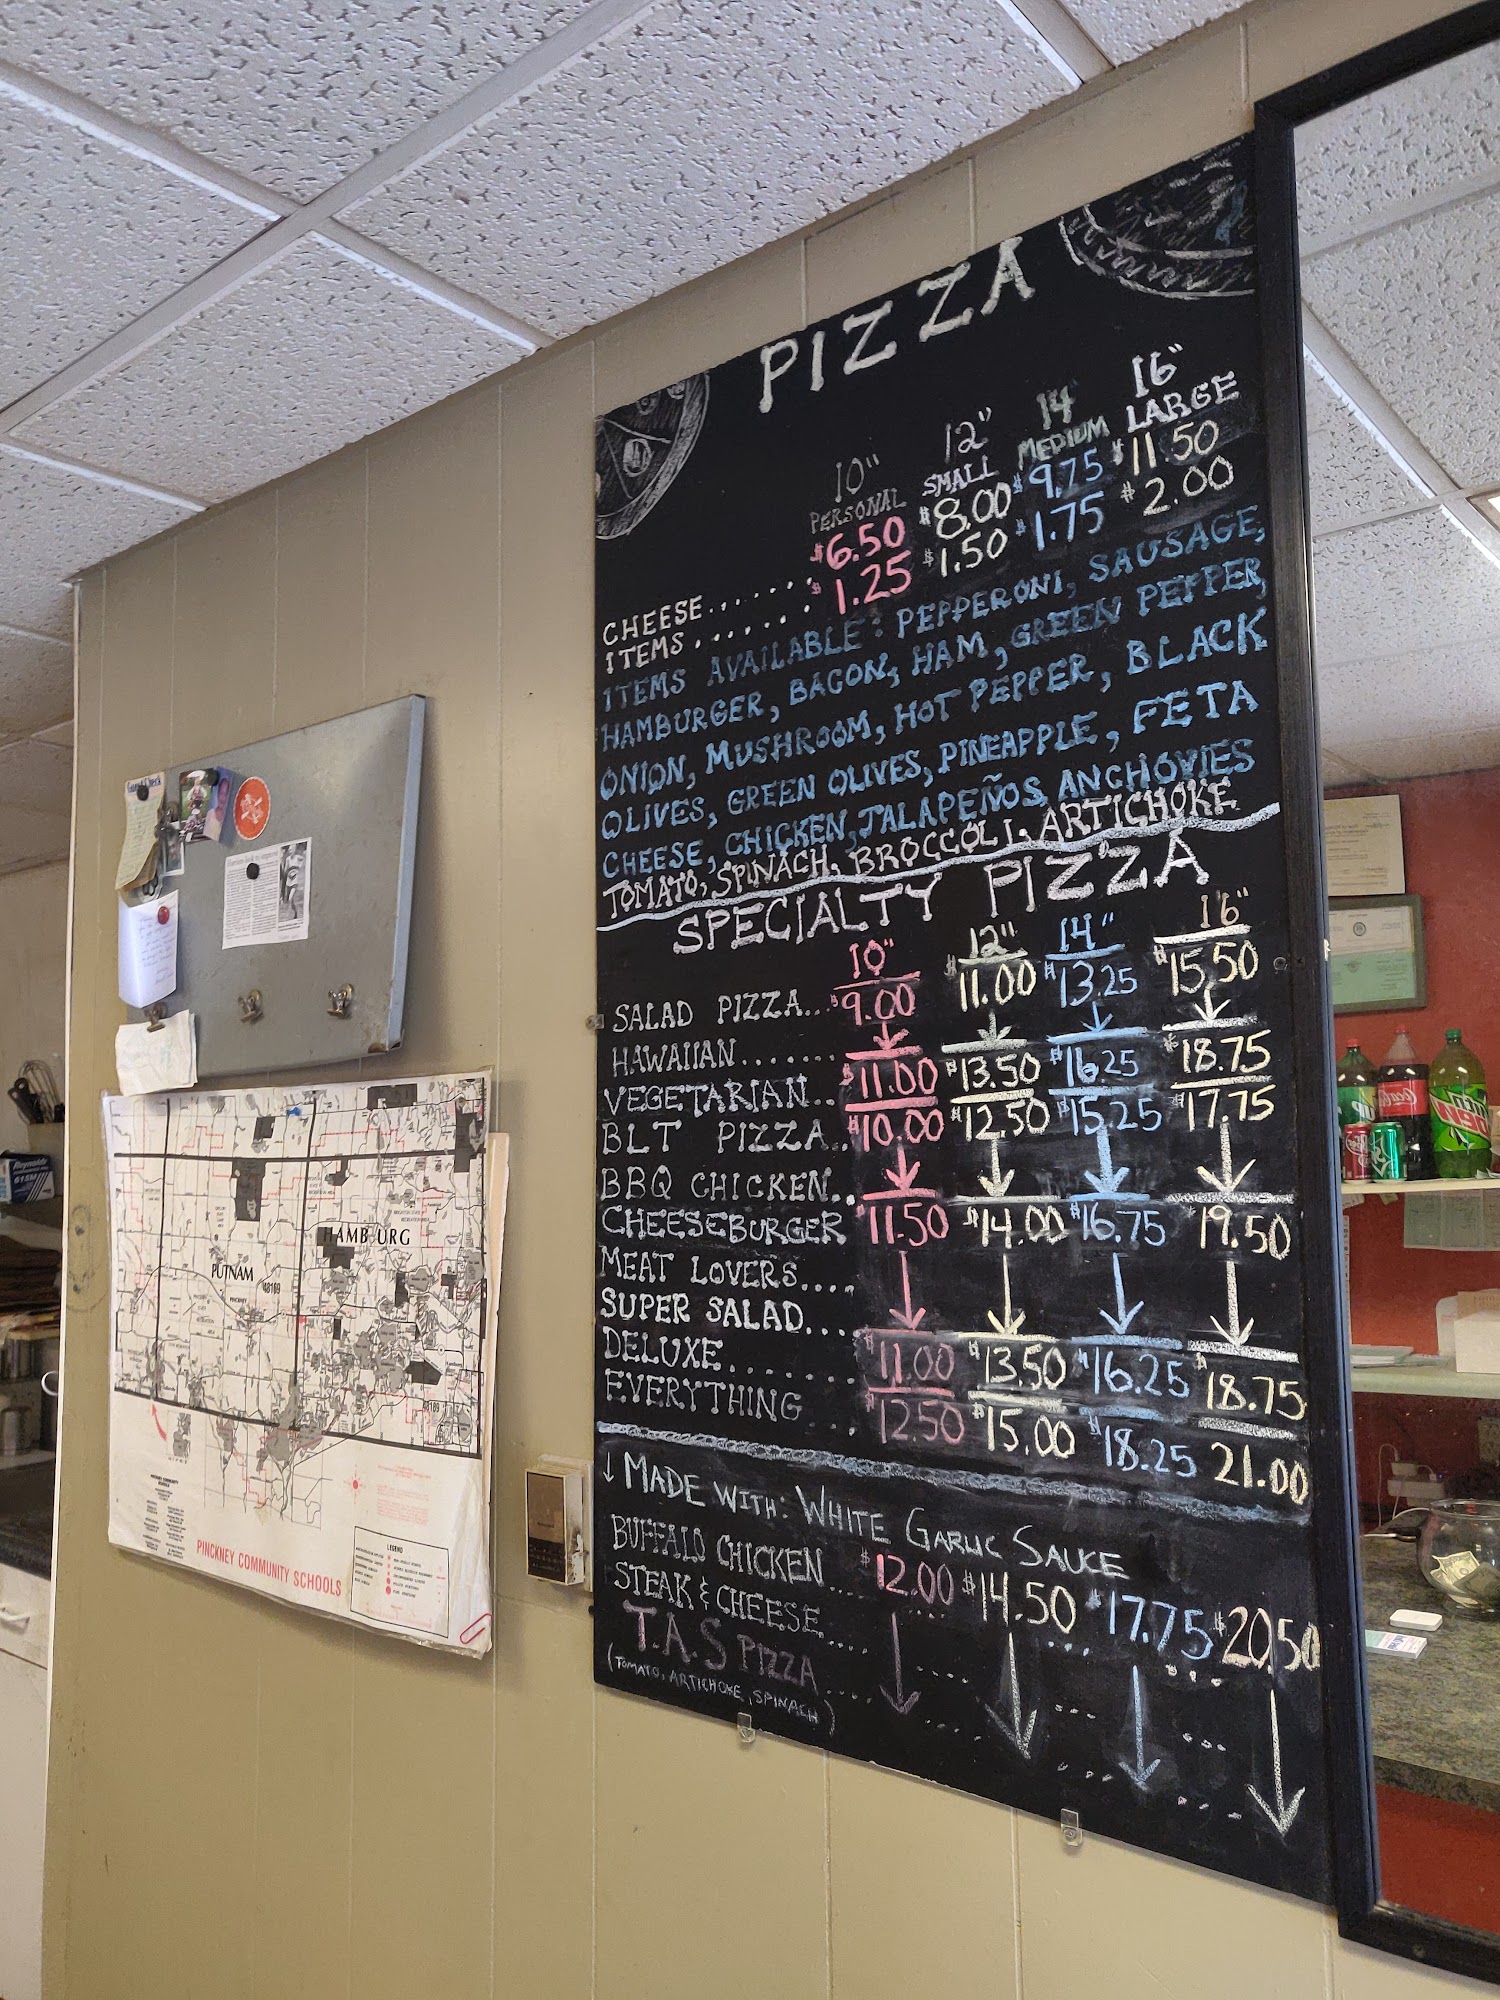 PIZZA
10" 12" 14 16"
PERSONAL SMALL MEDIUM LARGE
CHEESE...... $6.50 $8.00 $9.75 $11.50
ITEMS....... $1.25 $1.50 $1.75 $2.00
ITEMS AVAILABLE: PEPPERONI, SAUSAGE,
HAMBURGER, BACON, HAM, GREEN PEPPER,
ONION, MUSHROOM, HOT PEPPER, BLACK
OLIVES, GREEN OLIVES, PINEAPPLE, FETA
CHEESE, CHICKEN, JALAPEÑOS, ANCHOVIES
TOMATO, SPINACH, BROCCOLI, ARTICHOKE
SPECIALTY PIZZA
10" 12" 14" 16"
SALAD PIZZA... $9.00 $11.00 $13.25 $15.50
HAWAIIAN.......
VEGETARIAN.. $11.00 $13.50 $16.25 $18.75
BLT PIZZA.. $10.00 $12.50 $15.25 $17.75
BBQ CHICKEN..
CHEESEBURGER $11.50 $14.00 $16.75 $19.50
MEAT LOVERS....
SUPER SALAD...
DELUXE....... $11.00 $13.50 $16.25 $18.75
EVERYTHING... $12.50 $15.00 $18.25 21.00
↓ MADE WITH: WHITE GARLIC SAUCE
BUFFALO CHICKEN... $12.00 $14.50 $17.75 $20.50
STEAK & CHEESE....
T.A.S PIZZA....
(TOMATO, ARTICHOKE, SPINACH)
HAMBURG
PUTNAM
48169
PINCKNEY
48189
LEGEND
PINCKNEY COMMUNITY SCHOOLS
Reynolds